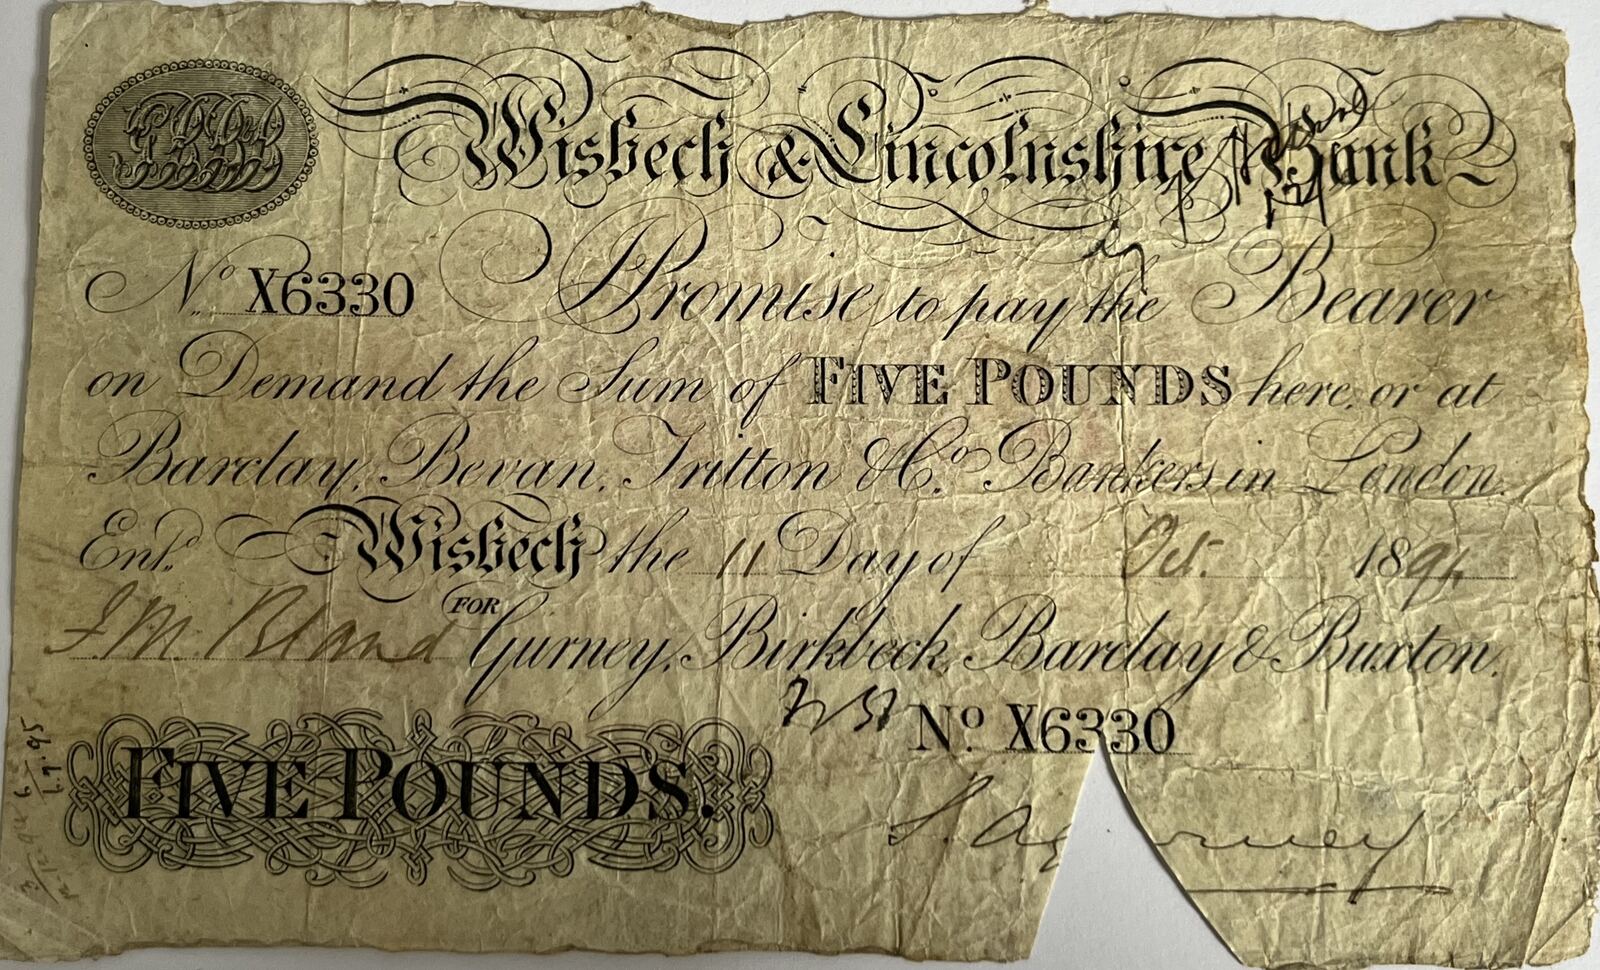 Wisbech & Lincolnshire Bank
No X6330 Promise to pay the Bearer
on Demand the Sum of FIVE POUNDS here, or at
Barclay, Bevan, Tritton & Co. Bankers in London.
Entd. Wisbech the 11 Day of Oct. 1894
FOR
J. M. Bland Gurney, Birkbeck, Barclay & Buxton.
No X6330
FIVE POUNDS.